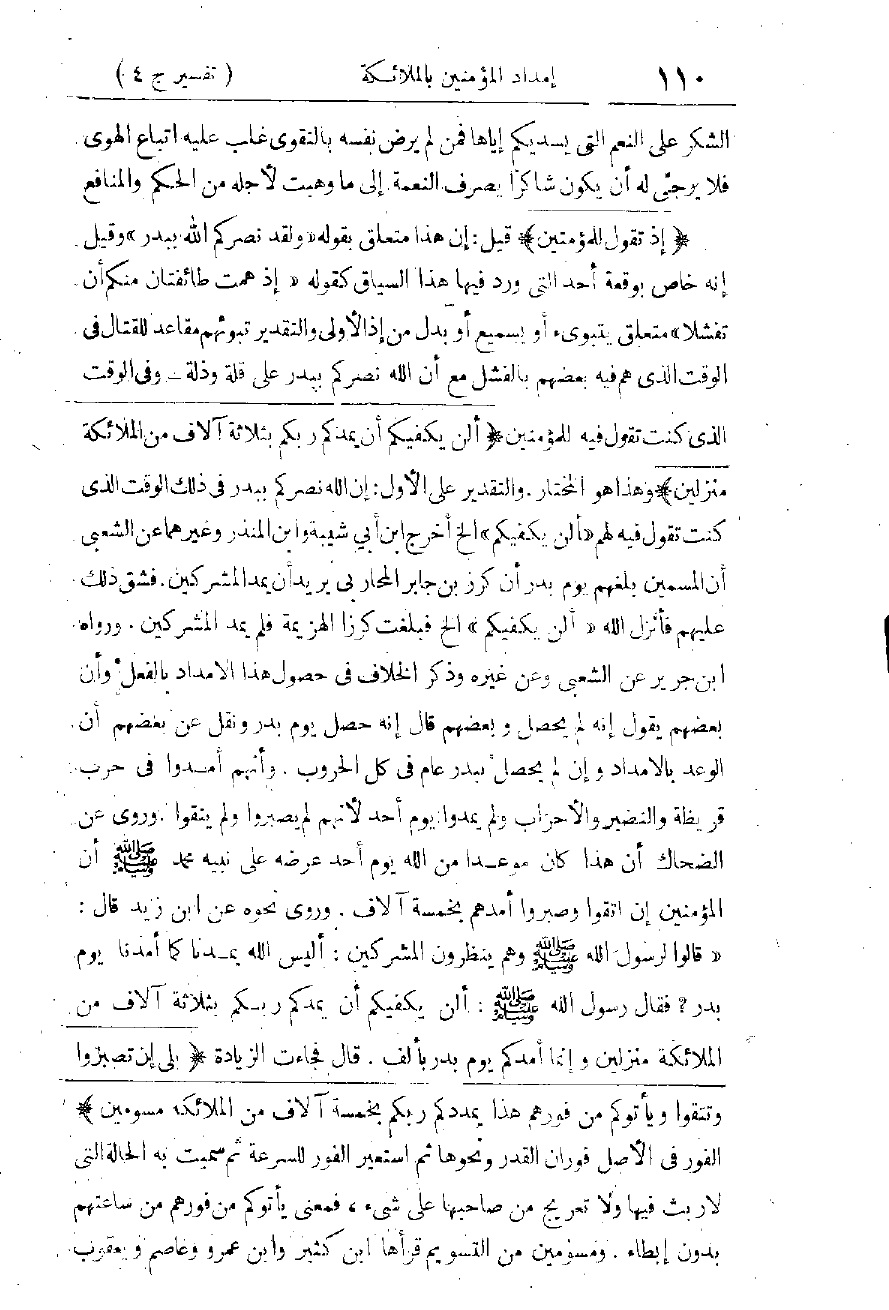 ١١٠ إمداد المؤمنين بالملائكة ( تفسير ج ٤ )
الشكر على النعم التى يسديكم إياها فمن لم يرض نفسه بالتقوى غلب عليه اتباع الهوى
فلا يرجى له أن يكون شاكرا يصرف النعمة إلى ما وهبت لأجله من الحكم والمنافع
﴿ إذ تقول للمؤمنين ﴾ قيل : إن هذا متعلق بقوله « ولقد نصركم الله ببدر » وقيل
إنه خاص بوقعة أحد التى ورد فيها هذا السياق كقوله « إذ همت طائفتان منكم أن
تفشلا » متعلق يتبوىء أو بسميع أو بدل من إذ الأولى والتقدير تبوئهم مقاعد للقتال فى
الوقت الذى هم فيه بعضهم بالفشل مع أن الله نصركم ببدر على قلة وذلة ــ وفى الوقت
الذى كنت تقول فيه للمؤمنين ﴿ ألن يكفيكم أن يمدكم ربكم بثلاثة آلاف من الملائكة
منزلين ﴾ وهذا هو المختار . والتقدير على الأول : إن الله نصركم ببدر فى ذلك الوقت الذى
كنت تقول فيه لهم « ألن يكفيكم » الخ أخرج ابن أبي شيبة وابن المنذر وغيرهما عن الشعبى
أن المسمين بلغهم يوم بدر أن كرز بن جابر المحاربى يريد أن يمد المشركين . فشق ذلك
عليهم فأنزل الله « ألن يكفيكم » الخ فبلغت كرزا الهزيمة فلم يمد المشركين . ورواه
ابن جرير عن الشعبى وعن غيره وذكر الخلاف فى حصول هذا الامداد بالفعل وأن
بعضهم يقول إنه لم يحصل وبعضهم قال إنه حصل يوم بدر ونقل عن بعضهم أن
الوعد بالامداد وإن لم يحصل ببدر عام فى كل الحروب . وأنهم أمدوا فى حرب
قريظة والنضير والأحزاب ولم يمدوا يوم أحد لأنهم لم يصبروا ولم يتقوا . وروى عن
الضحاك أن هذا كان موعدا من الله يوم أحد عرضه على نبيه محمد ﷺ أن
المؤمنين إن اتقوا وصبروا أمدهم بخمسة آلاف . وروى نحوه عن ابن زيد قال :
« قالوا لرسول الله ﷺ وهم ينظرون المشركين : أليس الله يمدنا كما أمدنا يوم
بدر ؟ فقال رسول الله ﷺ : ألن يكفيكم أن يمدكم ربكم بثلاثة آلاف من
الملائكة منزلين وإنما أمدكم يوم بدر بألف . قال فجاءت الزيادة ﴿ بلى إن تصبروا
وتتقوا ويأتوكم من فورهم هذا يمددكم ربكم بخمسة آلاف من الملائكة مسومين ﴾
الفور فى الأصل فوران القدر ونحوها ثم استعير الفور للسرعة ثم سميت به الحالة التى
لا ريث فيها ولا تعريج من صاحبها على شىء ، فمعنى يأتوكم من فورهم من ساعتهم
بدون إبطاء . ومسومين من التسويم قرأها ابن كثير وابن عمرو وعاصم ويعقوب